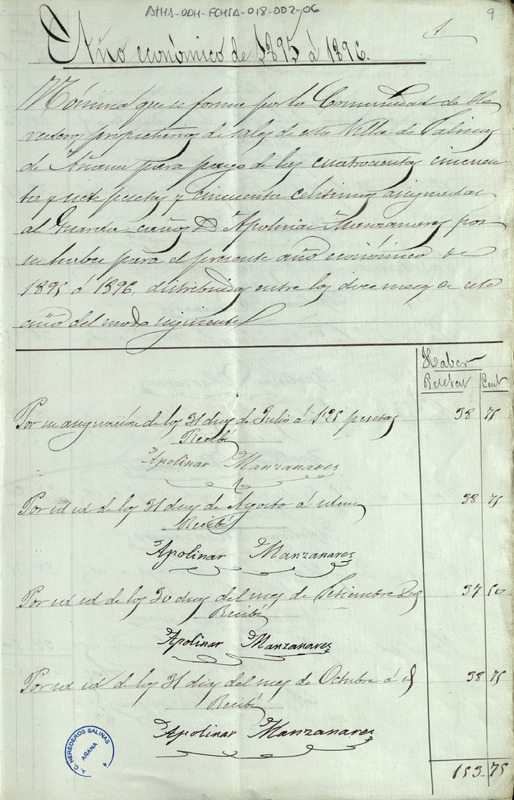 ATHA-DAH-FCHSA-018-002-06
9
1
Año económico de 1895 á 1896.
Nómina que se forma por la Comunidad de He
rederos propietarios de sales de esta Villa de Salinas
de Añana para pago de los cuatrocientas cincuen
ta y siete pesetas y cincuenta céntimos asignadas
al Guarda D. Apolinar Manzanares por
su haber para el presente año económico de
1895 á 1896, distribuido entre los doce meses de este
año del modo siguiente
Haber
Pesetas Cent
Por su asignación de los 31 dias de Julio á 1'25 pesetas 38 75
Recibí
Apolinar Manzanares
Por id id de los 31 dias de Agosto á idem 38 75
Recibí
Apolinar Manzanares
Por id id de los 30 dias del mes de Setiembre 37 50
Recibí
Apolinar Manzanares
Por id id de los 31 dias del mes de Octubre á id 38 75
Recibí
Apolinar Manzanares
153 75
A.C. HEREDEROS SALINAS
AÑANA